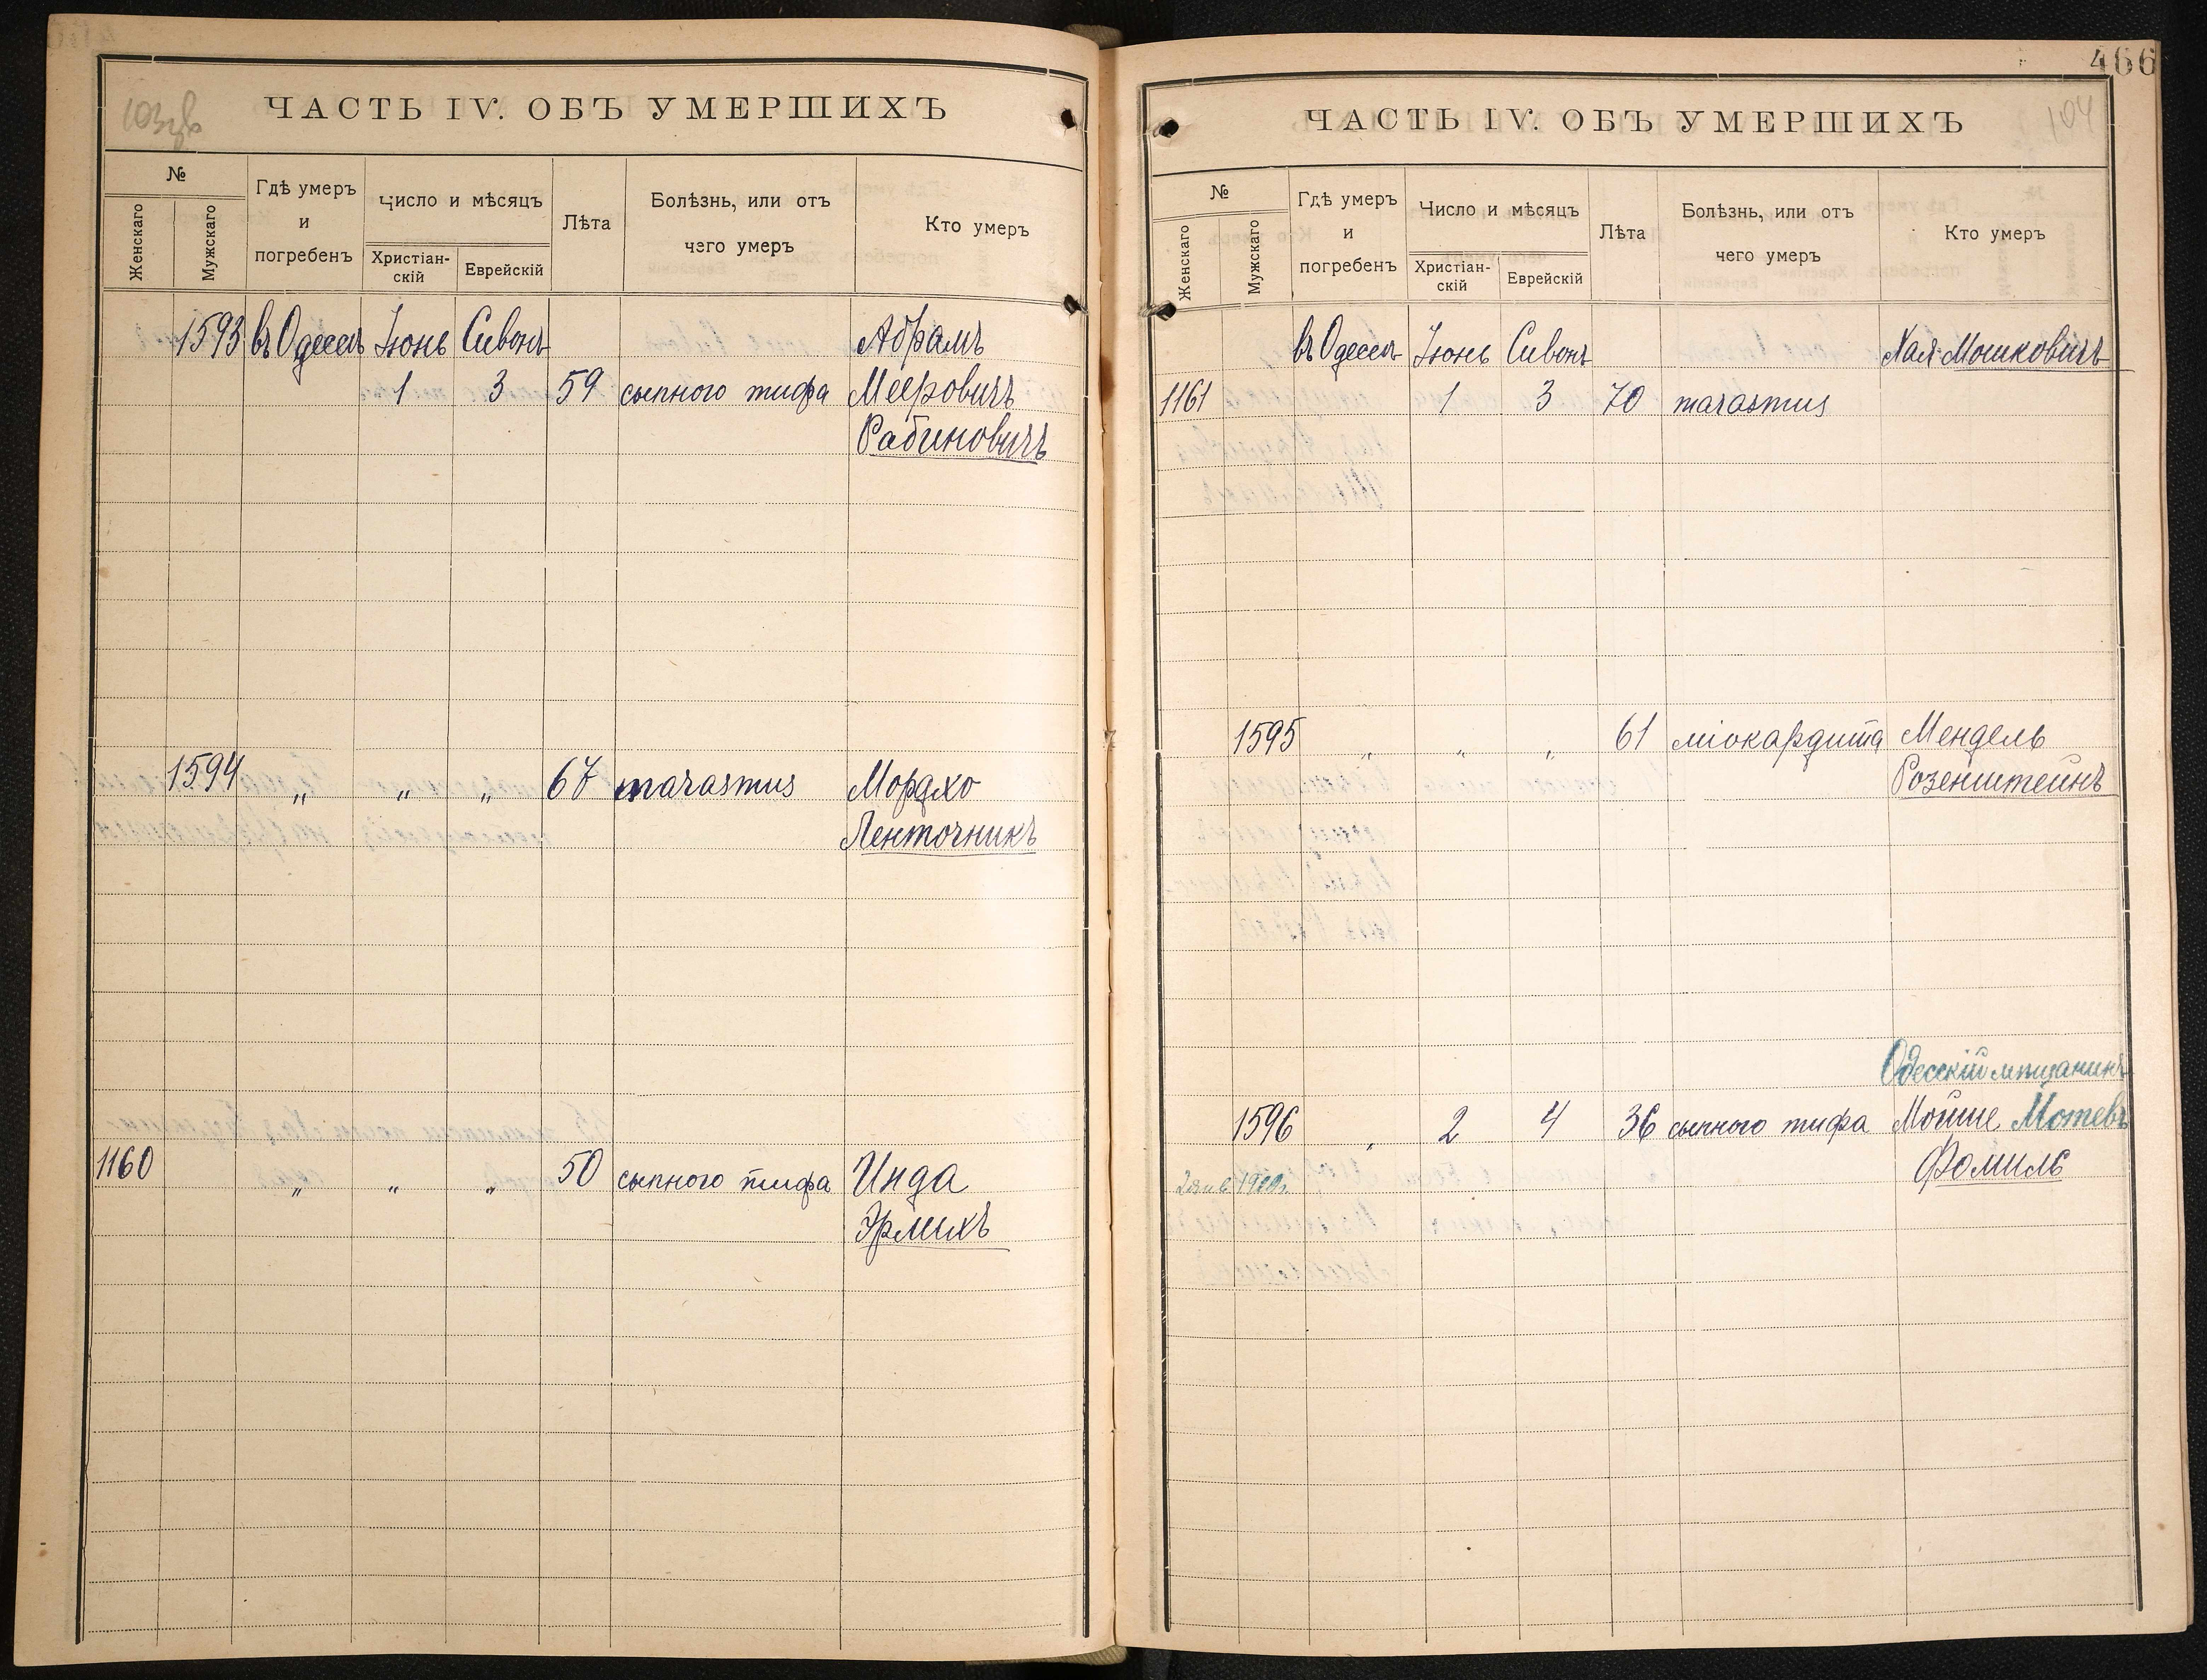 103 об
ЧАСТЬ IV. ОБЪ УМЕРШИХЪ
№
Женскаго
Мужскаго
Гдѣ умеръ
и
погребенъ
Число и мѣсяцъ
Христіан-
скій
Еврейскій
Лѣта
Болѣзнь, или отъ
чего умеръ
Кто умеръ
1593 въ Одессѣ Іюнь Сивонъ Абрамъ
1 3 59 сыпного тифа Мееровичъ
Рабиновичъ
1594 „ „ „ 67 marasmus Мордхо
Ленточникъ
1160 „ „ „ 50 сыпного тифа Инда
Эрлихъ
466
104
ЧАСТЬ IV. ОБЪ УМЕРШИХЪ
№
Женскаго
Мужскаго
Гдѣ умеръ
и
погребенъ
Число и мѣсяцъ
Христіан-
скій
Еврейскій
Лѣта
Болѣзнь, или отъ
чего умеръ
Кто умеръ
въ Одессѣ Іюнь Сивонъ Хая Мошковичъ
1161 1 3 70 marasmus
1595 „ „ „ 61 міокардита Мендель
Розенштейнъ
Одесскій мѣщанинъ
1596 „ 2 4 36 сыпного тифа Мойше Мотевъ
Фомиль